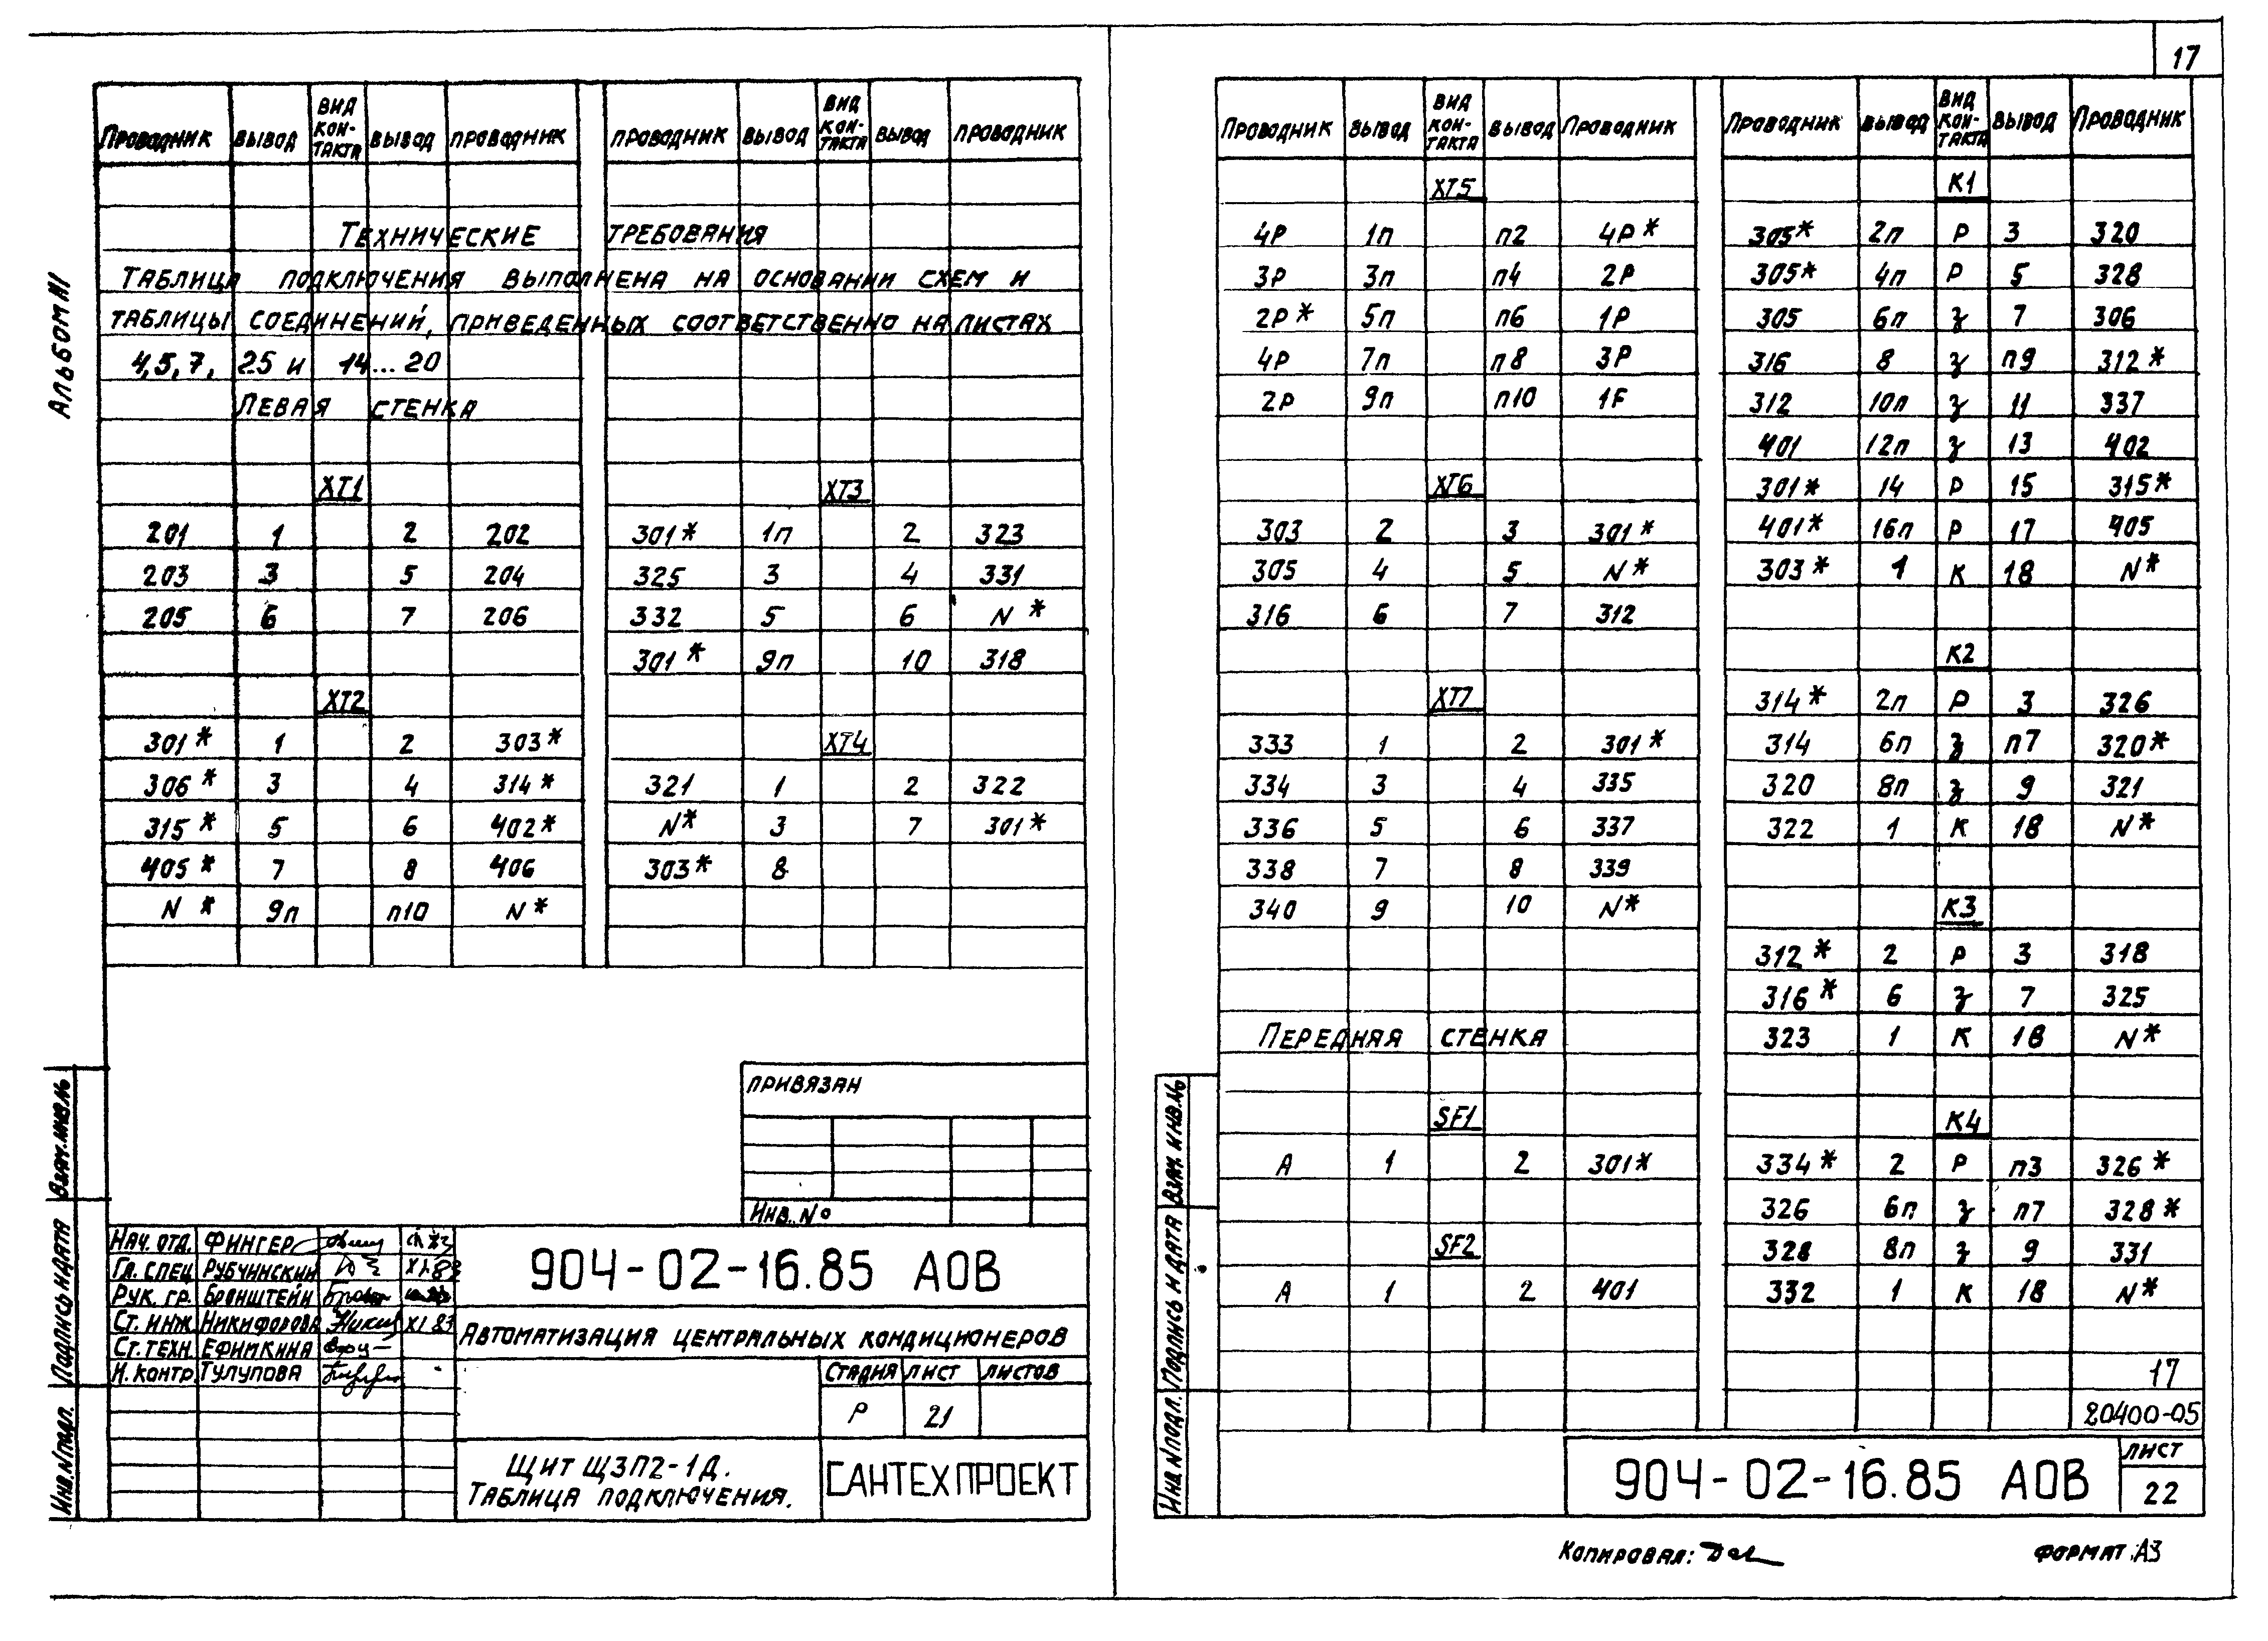 17
Альбом VI
Проводник Вывод Вид кон-такта Вывод Проводник Проводник Вывод Вид кон-такта Вывод Проводник
Технические требования
Таблица подключения выполнена на основании схем и
таблицы соединений, приведенных соответственно на листах
4,5,7, 25 и 14...20
Левая стенка
XT1 XT3
201 1 2 202 301* 1п 2 323
203 3 5 204 325 3 4 331
205 6 7 206 332 5 6 N*
301* 9п 10 318
XT2
301* 1 2 303* XT4
306* 3 4 314* 321 1 2 322
315* 5 6 402* N* 3 7 301*
405* 7 8 406 303* 8
N* 9п п10 N*
Привязан
Инв. №
Нач. отд. Фингер
Гл. спец Рубчинский XI.83
Рук. гр. Бронштейн
Ст. инж. Никифорова XI 83
Ст. техн. Ефимкина
Н. контр. Тулупова
904-02-16.85 АОВ
Автоматизация центральных кондиционеров
Стадия Лист Листов
Р 21
Щит ЩЗП2-1Д.
Таблица подключения.
САНТЕХПРОЕКТ
Взам. инв. №
Подпись и дата
Инв. № подл.
Проводник Вывод Вид кон-такта Вывод Проводник Проводник Вывод Вид кон-такта Вывод Проводник
XT5 К1
4Р 1п п2 4Р* 305* 2п Р 3 320
3Р 3п п4 2Р 305* 4п Р 5 328
2Р* 5п п6 1Р 305 6п З 7 306
4Р 7п п8 3Р 316 8 З п9 312*
2Р 9п п10 1F 312 10п З 11 337
401 12п З 13 402
XT6 301* 14 Р 15 315*
303 2 3 301* 401* 16п Р 17 405
305 4 5 N* 303* 1 К 18 N*
316 6 7 312
К2
XT7 314* 2п Р 3 326
333 1 2 301* 314 6п З п7 320*
334 3 4 335 320 8п З 9 321
336 5 6 337 322 1 К 18 N*
338 7 8 339
340 9 10 N* К3
312* 2 Р 3 318
316* 6 З 7 325
Передняя стенка 323 1 К 18 N*
SF1 К4
А 1 2 301* 334* 2 Р п3 326*
326 6п З п7 328*
SF2 328 8п З 9 331
А 1 2 401 332 1 К 18 N*
17
20400-05
Взам. инв. №
Подпись и дата
Инв. № подл.
904-02-16.85 АОВ
Лист
22
Копировал:
Формат А3